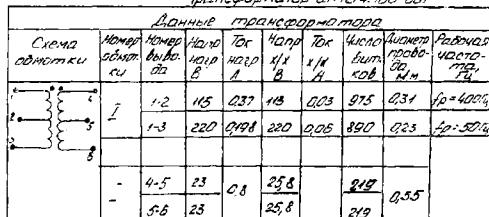 Данные трансформатора
Схема обмотки Номер обмот. ки Номер выво- да Напр нагр В Ток нагр А Напр х/х В Ток х/х А Число вит. ков Диаметр прово- да, мм Рабочая часто- та, Гц
1 4
2 5
3 6
I 1-2 115 0,37 113 0,03 975 0,31 fр=400Гц
1-3 220 0,198 220 0,06 890 0,23 fр=50Гц
- 4-5 23 0,8 25,8 219 0,55
- 5-6 23 25,8 219